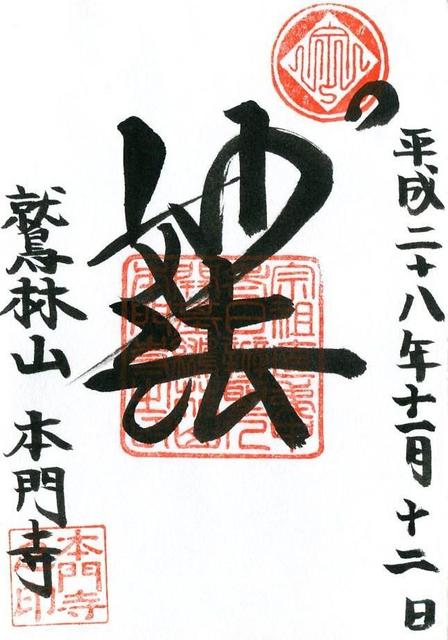 平成二十八年十一月十二日
妙法
鷲林山 本門寺
本門寺